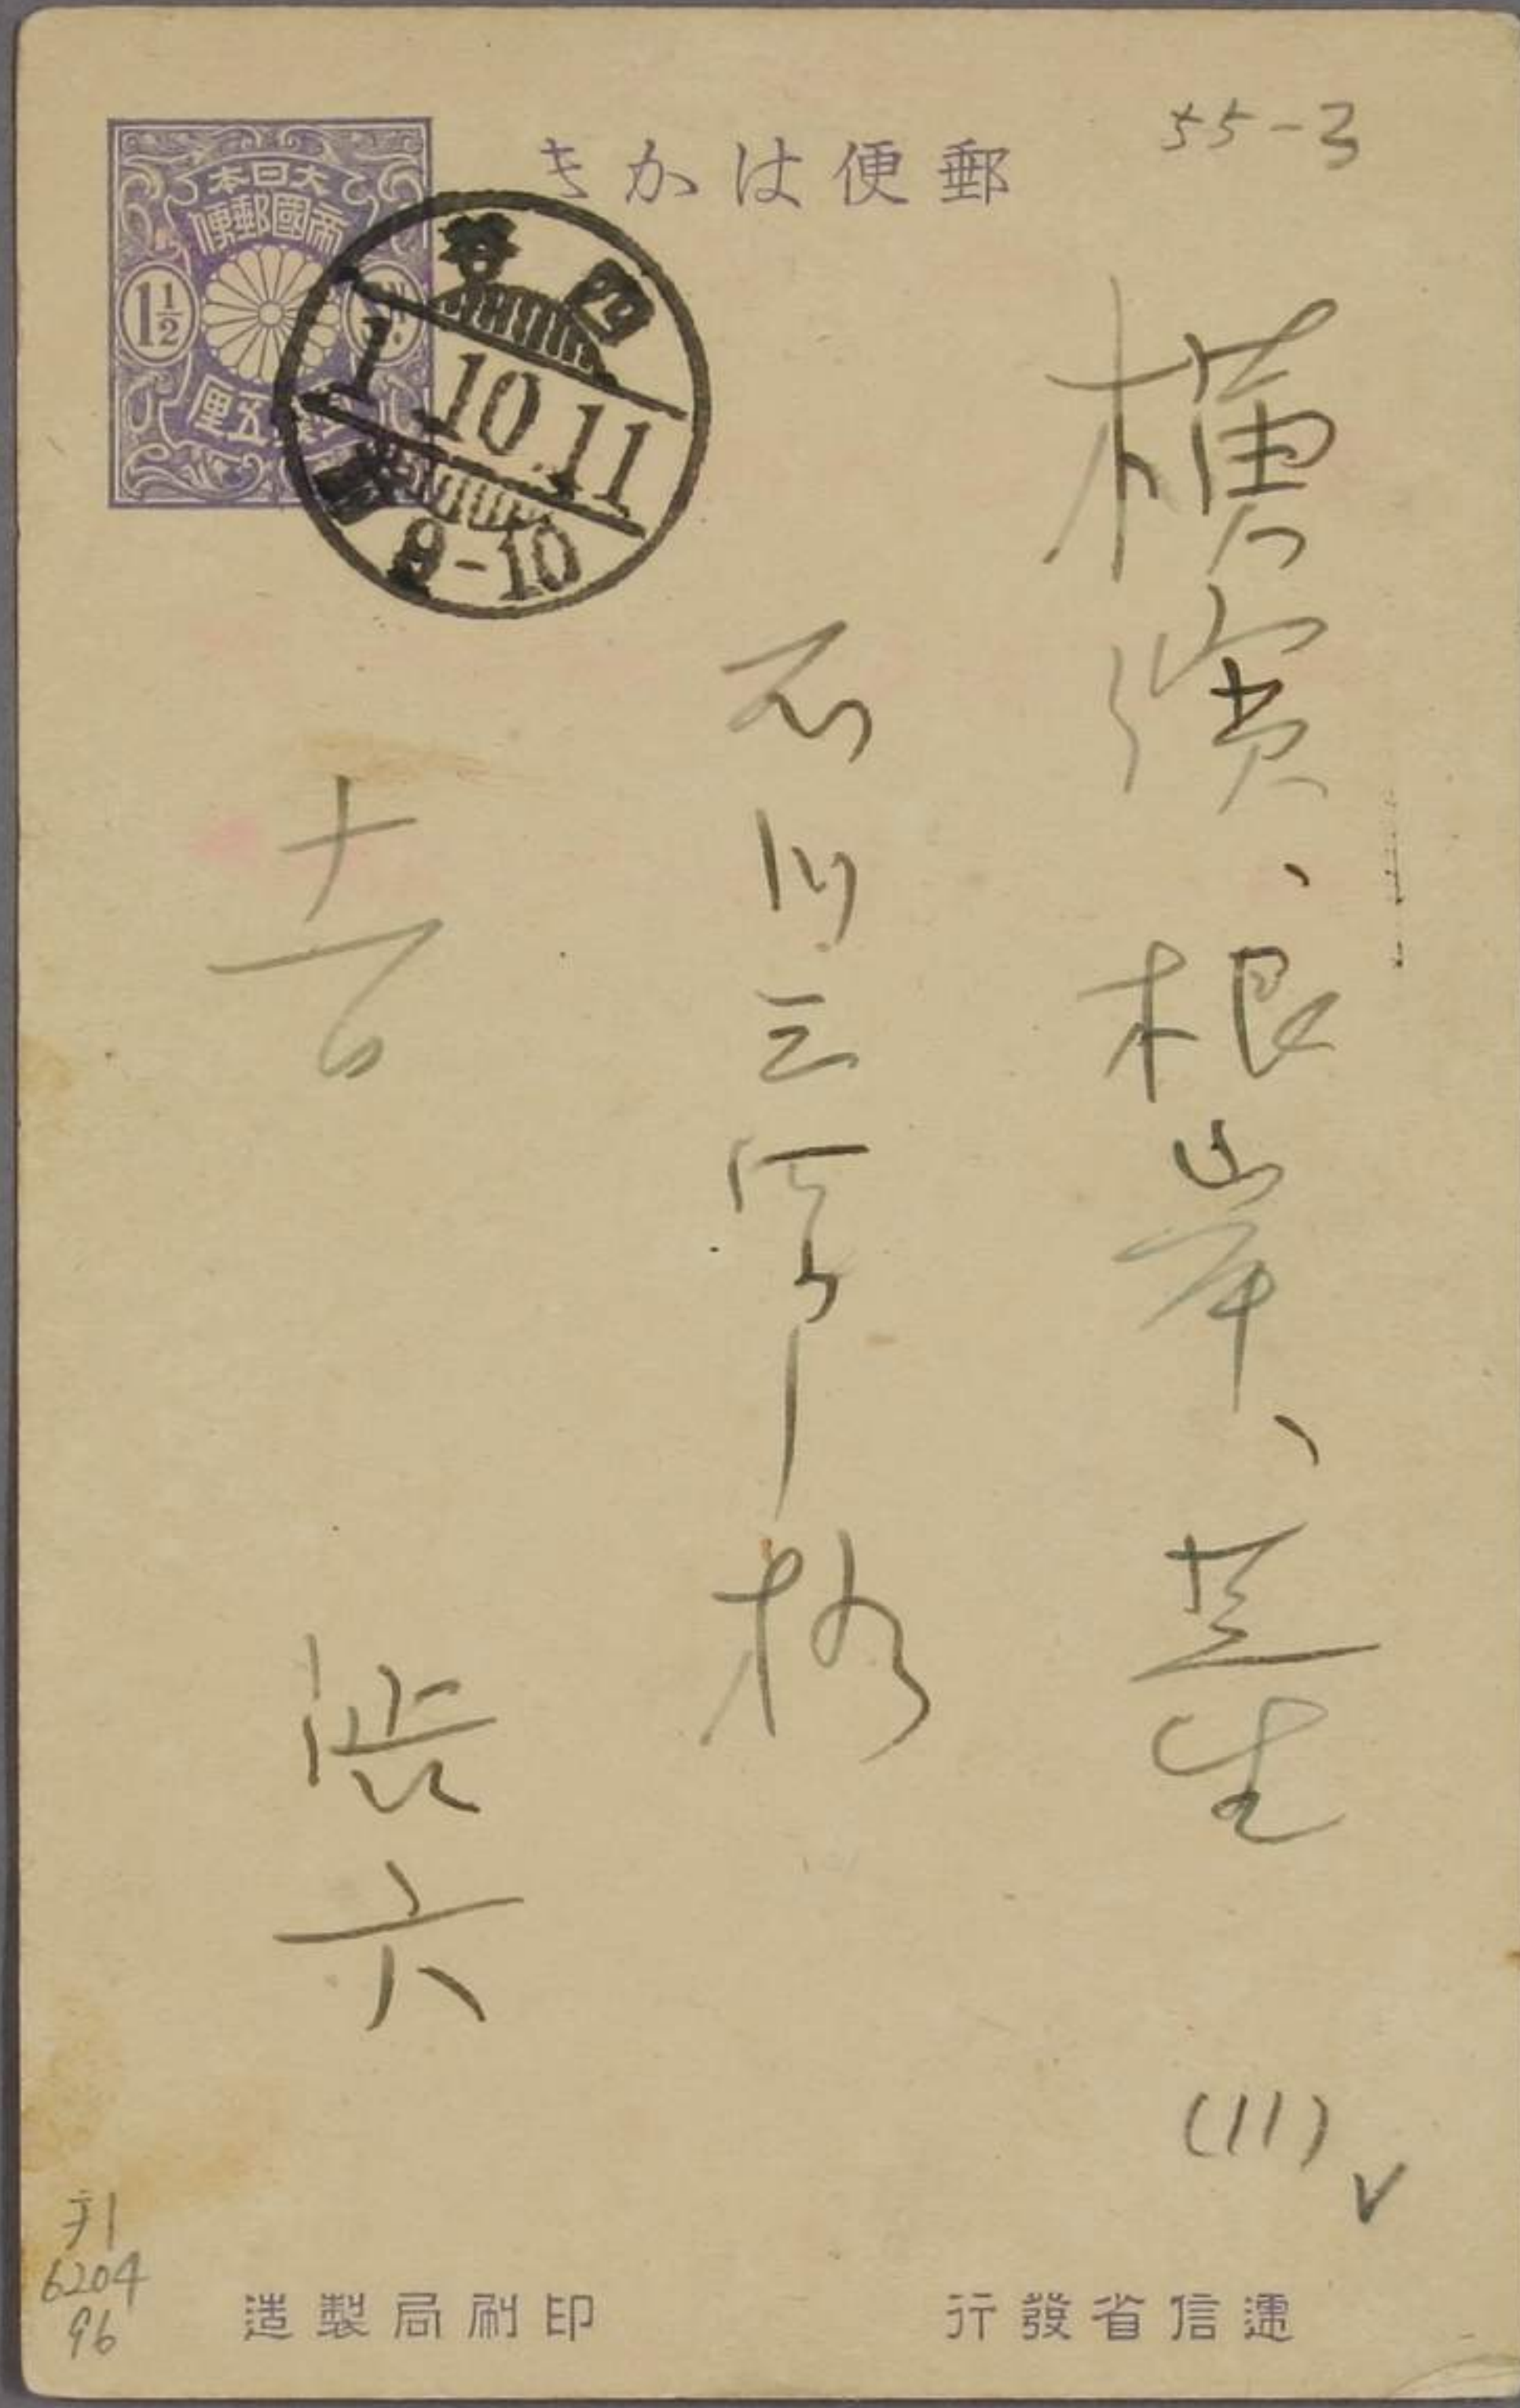 郵便はかき
55-3
大日本
帝國郵便
1½
五厘
四谷
1.10.11
9-10
横濱、根岸、芝生
石川三四郎様
十一日
渋六
(11)
6204
96
逓信省發行
印刷局製造